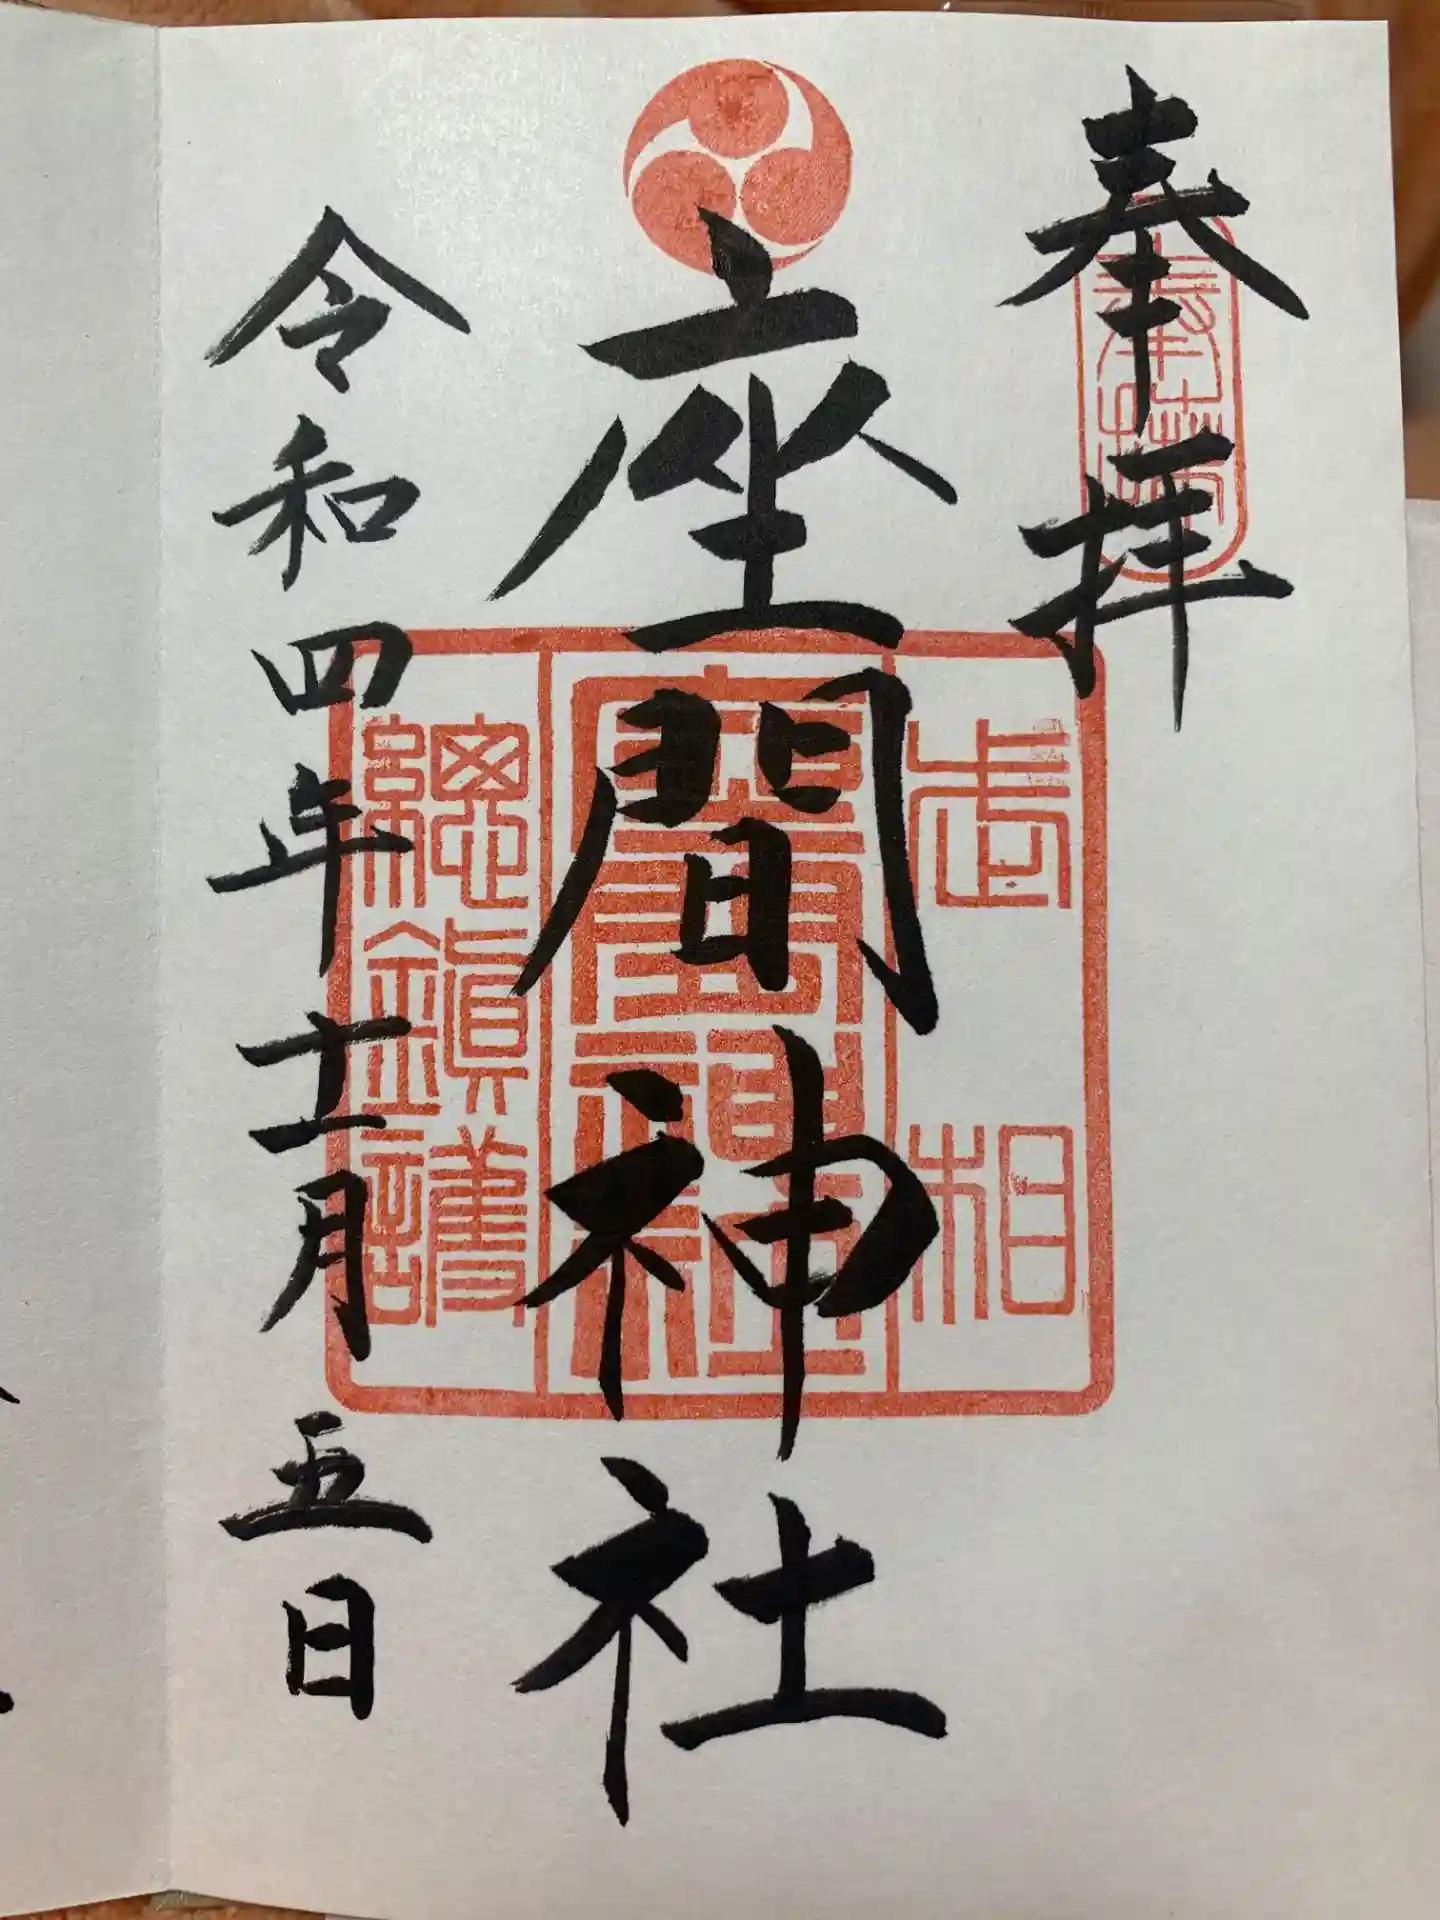 奉拝
奉拝
座間神社
武相
座間神社
總鎮護
令和四年十一月五日